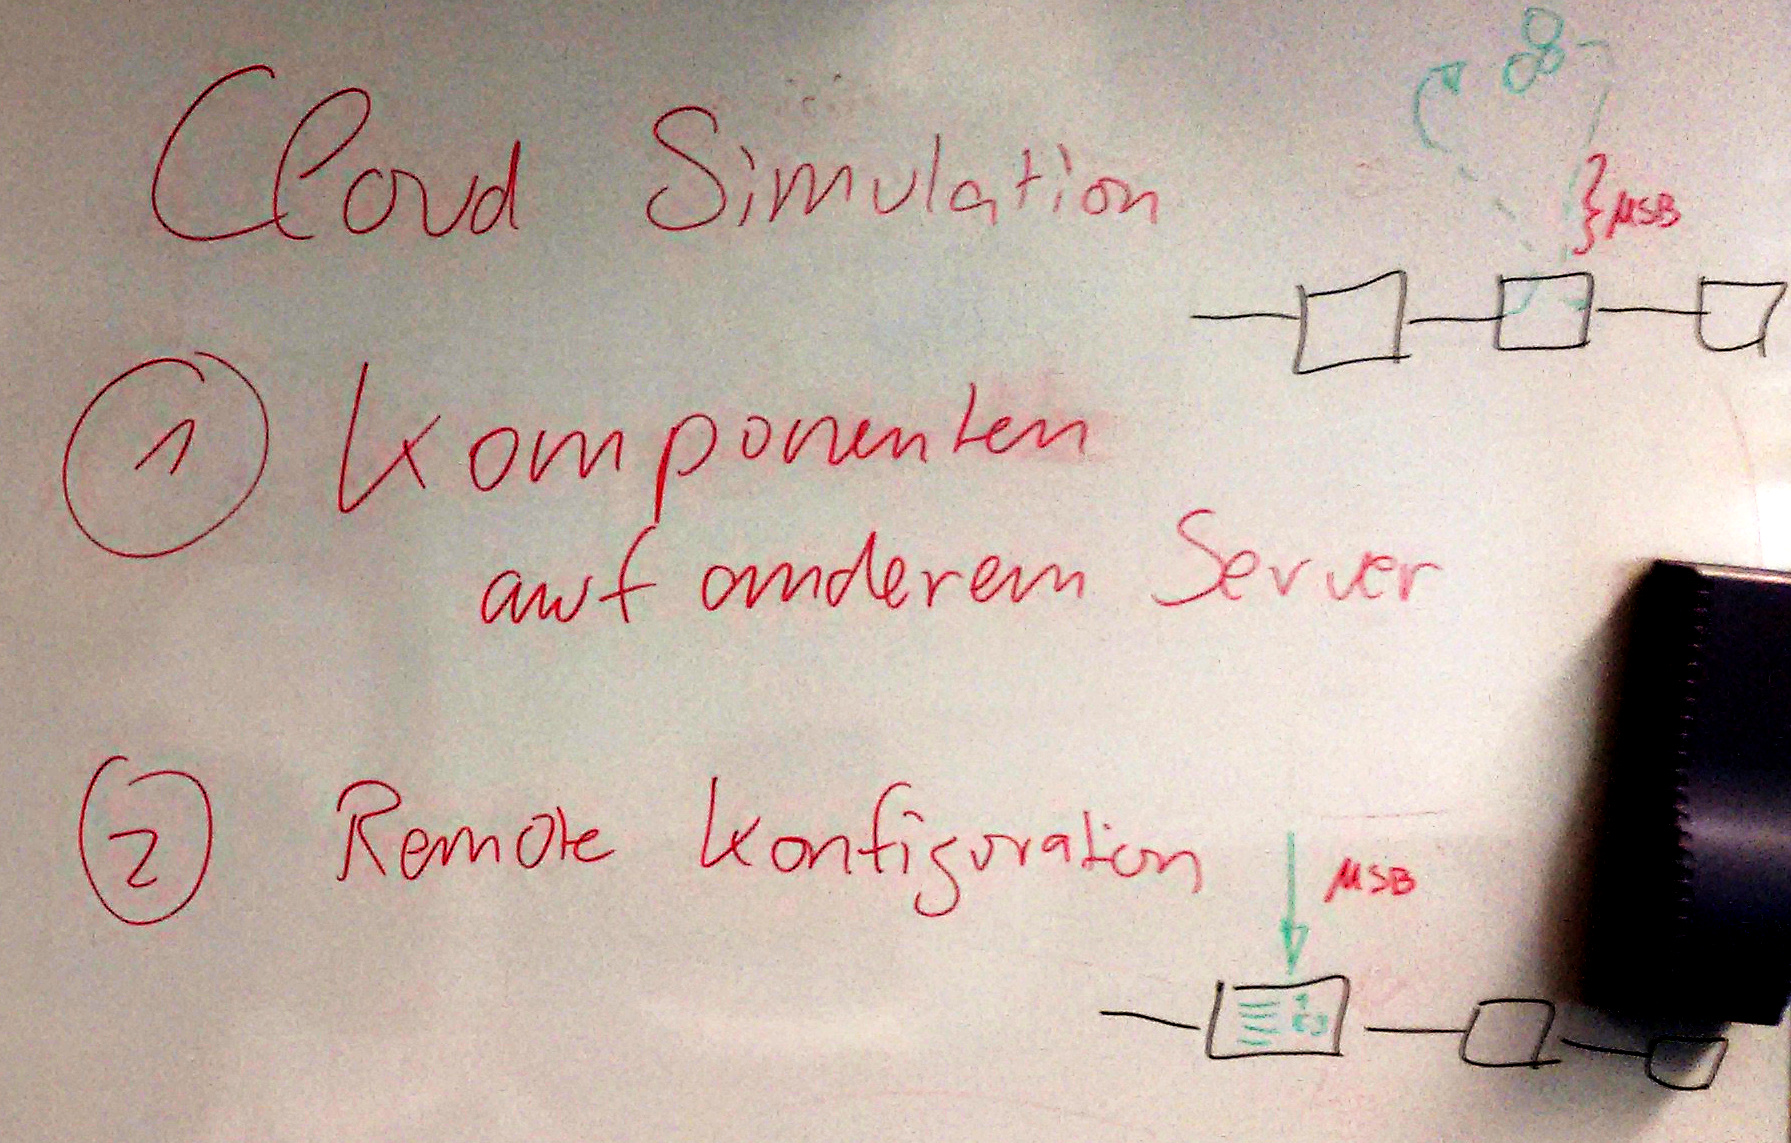 Cloud Simulation
} MSB
1 Komponenten
auf anderem Server
2 Remote Konfiguration
MSB